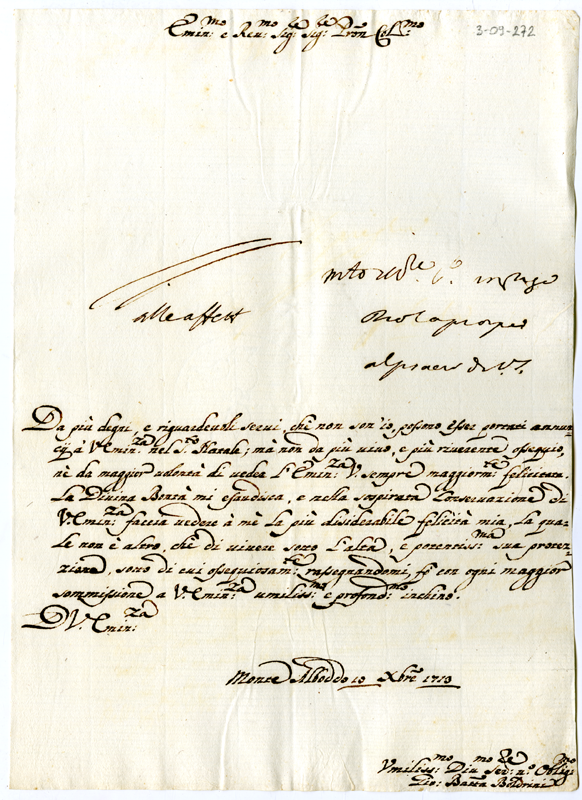 Emin:mo e Reu:mo Sig:re Sig:re Prõn Col:mo
3-09-272
alle affett
Da più degni, e riguardeuoli serui, che non son'io, possono esser portati annun-
cij à V.Emin:za nel S:to Natale; mà non da più viuo, e più riuerente ossequio,
nè da maggior volontà di veder l'Emin:za V. sempre maggiorm:te felicitata.
La Diuina Bontà mi esaudisca, e nella sospirata conseruazione di
V.Emin:za faccia vedere à mè la più disiderabile felicità mia, la qua-
le non è altro, che di viuere sotto l'alta, e potentiss:ma sua prote-
zione, sotto di cui ossequiosam:te rassegnandomi, fò con ogni maggior
sommissione a V.Emin:za umiliss:mo e profond:mo inchino.
D V.Emin:za
Monte Alboddo 13 Xbre 1713
Vmiliss:mo Diu:mo Ser:re n:o Oblig:mo
Gio: Batta Boldrini